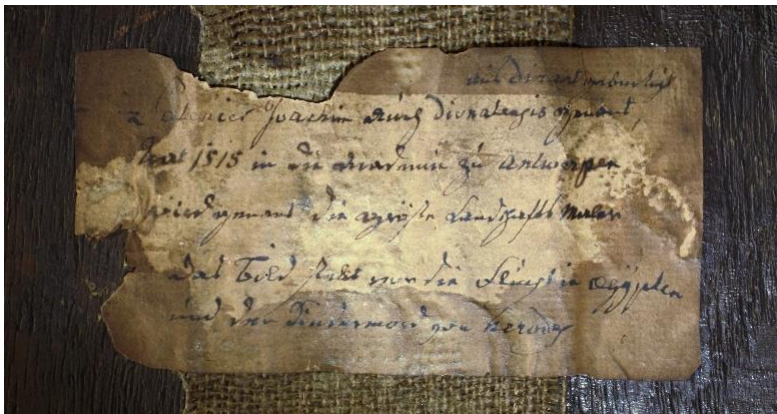 aus Dinant gebürtig
Patenier Joachim auch Dionatensis genant,
trat 1515 in die Academie zu Antwerpen
wird genant die gröste Landschafts Maler
Das Bild stelt vor die Flucht in Egÿpten
und der Kindermord von Herodes